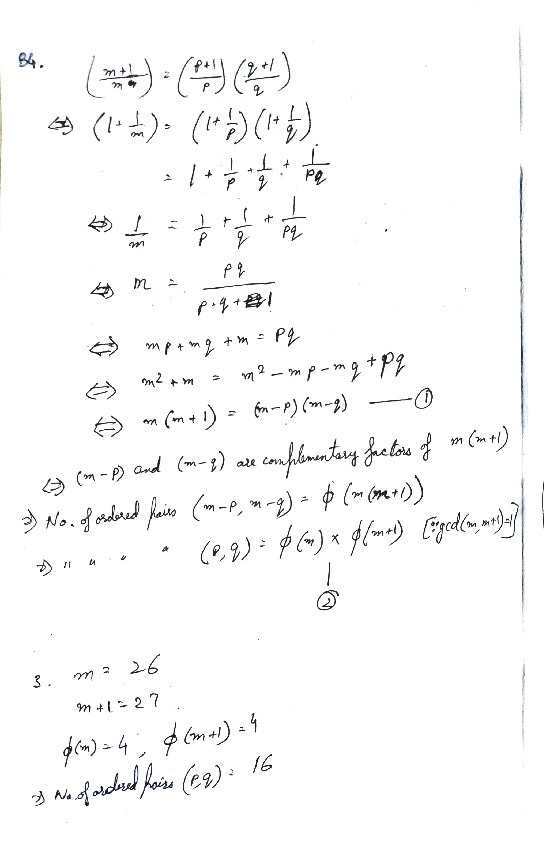 84. ((m+1)/m) = ((p+1)/p) ((q+1)/q)
⇔ (1 + 1/m) = (1 + 1/p) (1 + 1/q)
= 1 + 1/p + 1/q + 1/pq
⇔ 1/m = 1/p + 1/q + 1/pq
⇔ m = pq/(p+q+1)
⇔ mp + mq + m = pq
⇔ m² + m = m² - mp - mq + pq
⇔ m(m+1) = (m-p)(m-q) —— ①
⇔ (m-p) and (m-q) are complementary factors of m(m+1)
⇒ No. of ordered pairs (m-p, m-q) = ϕ(m(m+1))
⇒ " " " " (p, q) = ϕ(m) × ϕ(m+1) [∵ gcd(m, m+1)=1]
②
3. m = 26
m+1 = 27
ϕ(m) = 4, ϕ(m+1) = 4
⇒ No. of ordered pairs (p,q) = 16